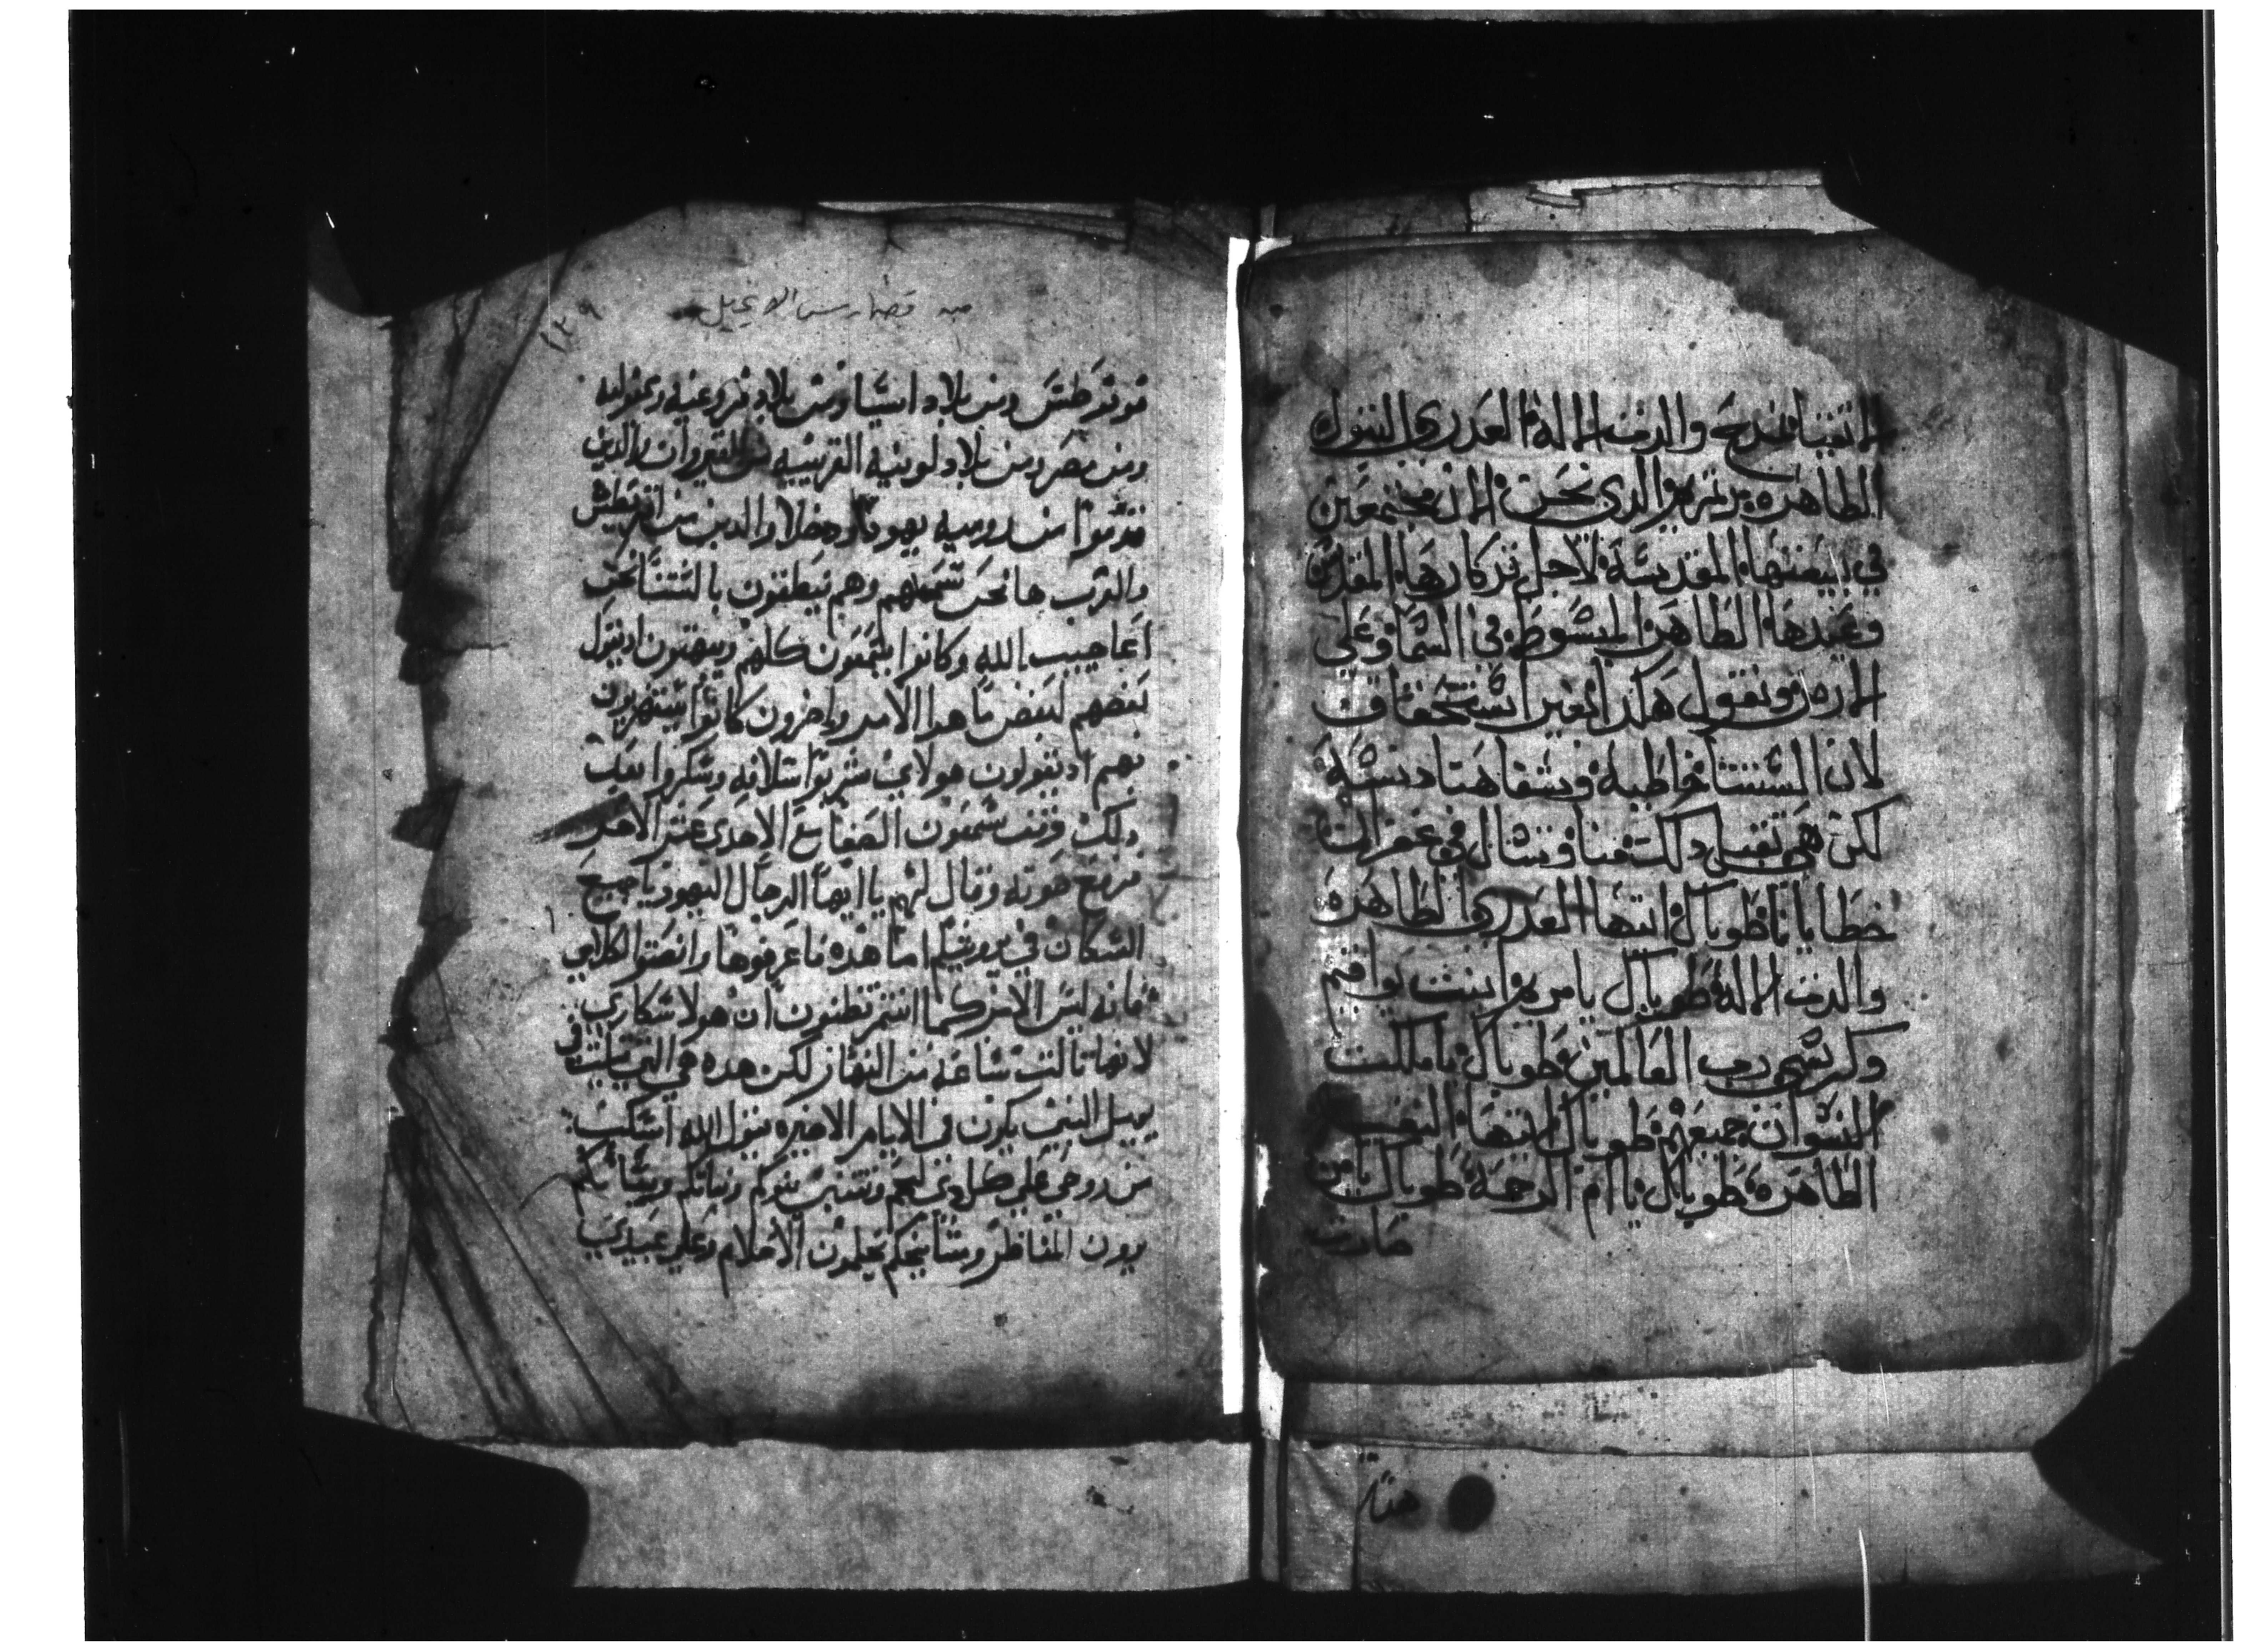 الانقيا فنمدح والدت الاله العدري البتول
الطاهره مرتمريم الدي نحن الان مجتمعين
في بيعتها المقدسة لاجل تدكارها المقدس
وعيدها الطاهر المبسوط في السما وعلي
الارض ونقول هكدا بغير استحقاق
لان السنتنا خاطيه وشفاهنا دنسه
لكن هي تقبل دلك منا وتسال في غفران
خطايانا طوباك ايتها العدري الطاهره
والدت الاله طوباك يا مريم ابنت يواقيم
وكرسي رب العالمين طوباك يا ملكت
النسوان جميعهم طوباك ايتها النفس
الطاهره طوباك يا ام الرحمه طوباك يا من
صارت
هنه
١٢٩
الانجيل
ومن بلاد اسيا ومن بلاد فروغيه
ومن مصر ومن بلاد لوبيه القريبيه من القيروان والدين
قدموا من روميه يهودا ودخلا والدين من اقريطش
والعرب ها نحن نسمعهم وهم ينطقون بالسنتنا نحن
اعاجيب الله وكانوا يتعجبون كلهم ويبهتون اد يقول
بعضهم لبعض ما هدا الامر واخرون كانوا يستهزون
بهم اد يقولون هولاي شربوا سلافه وسكروا بعد
دلك وقف سمعون الصفا مع الاحدي عشر الاخر
فرفع صوته وقال لهم يا ايها الرجال اليهود يا جميع
السكان في يروشليم اما هده فاعرفوها وانصتوا لكلامي
فانه ليس الامر كما انتم تظنون ان هولا سكاري
لانها تالت ساعه من النهار لكن هده هي التي قيلت في
يييل النبي يكون في الايام الاخيره يقول الله اسكب
من روحي علي كل دي لحم وتتنبي بنوكم وبناتكم وشبانكم
يرون المناظر ومشايخكم يحلمون الاحلام وعلي عبيدي